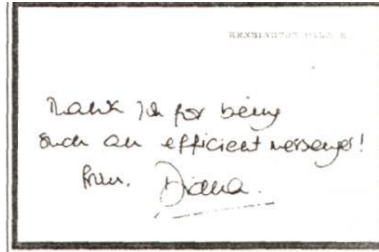 KENSINGTON PALACE
Thank you for being
such an efficient messenger!
from. Diana.